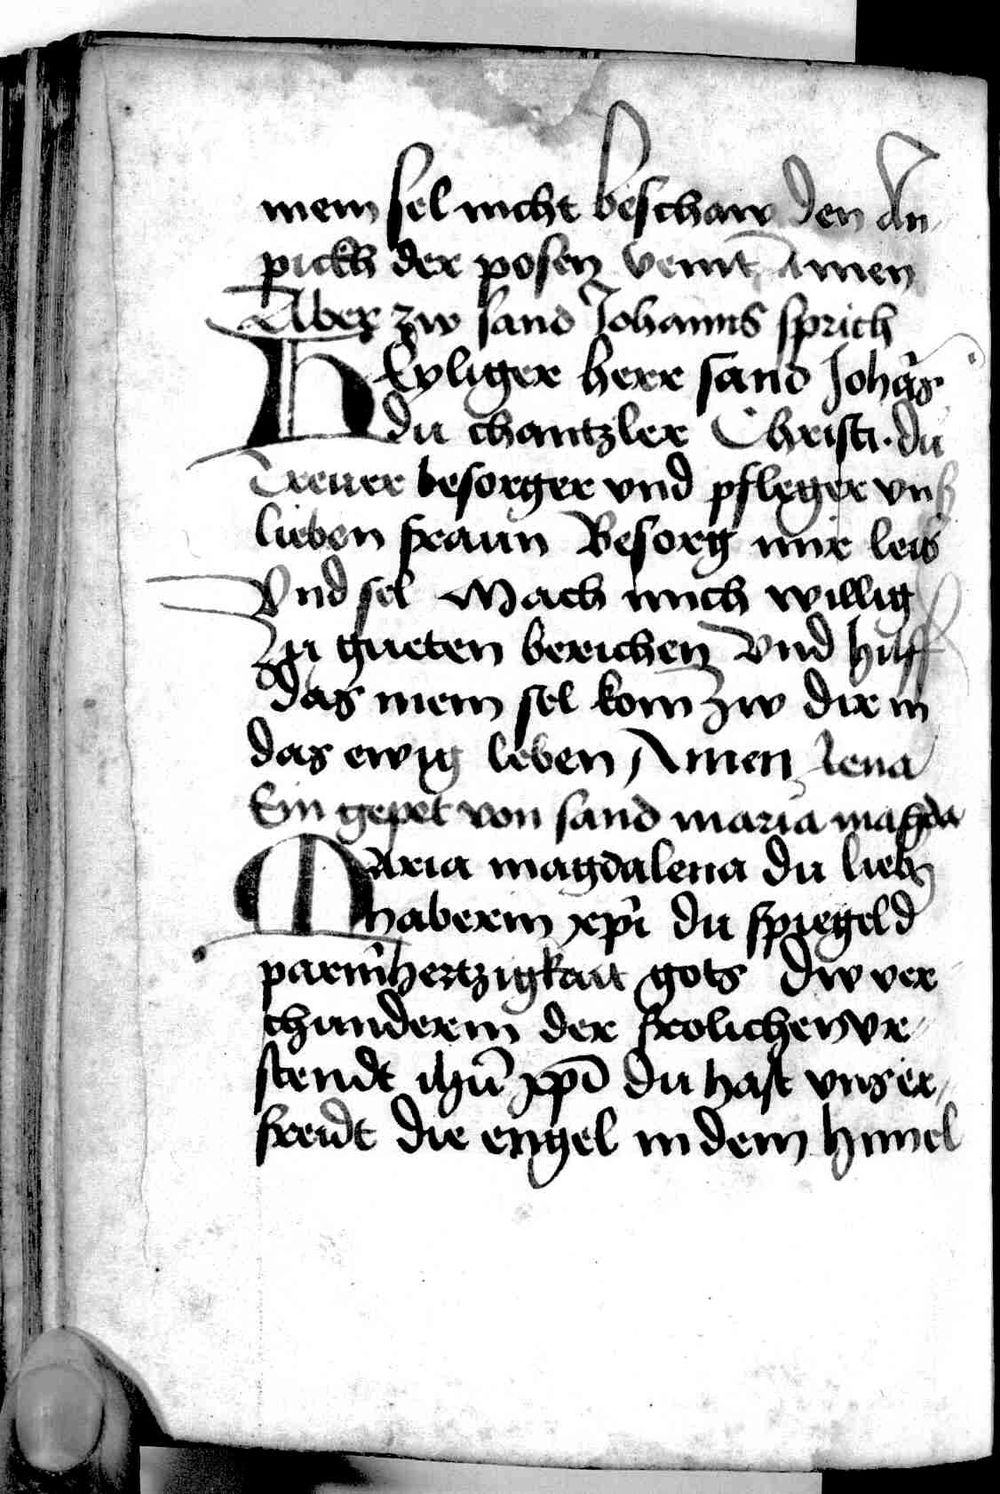 mein sel nicht beschaw den An
pickh der posen veint Amen
Aber zw sand Johanns sprich
Heyliger herr sand Johãs
du chantzler Christi. du
Trewer besorger vnd pfleger vnß
lieben fraun Besorg mir leib
Vnd sel Mach mich willig
Zu gueten berichen Vnd hilff
das mein sel kom zw dir in
das ewig leben Amen lena
Ein gepet von sand maria magda
Maria magdalena du lieb
haberin xpi du spiegel d
parmhertzigkait gots Dw ver
chunderin der frolichen vr
stendt ihu xpi du hast vns er
freidt die engel in dem himel